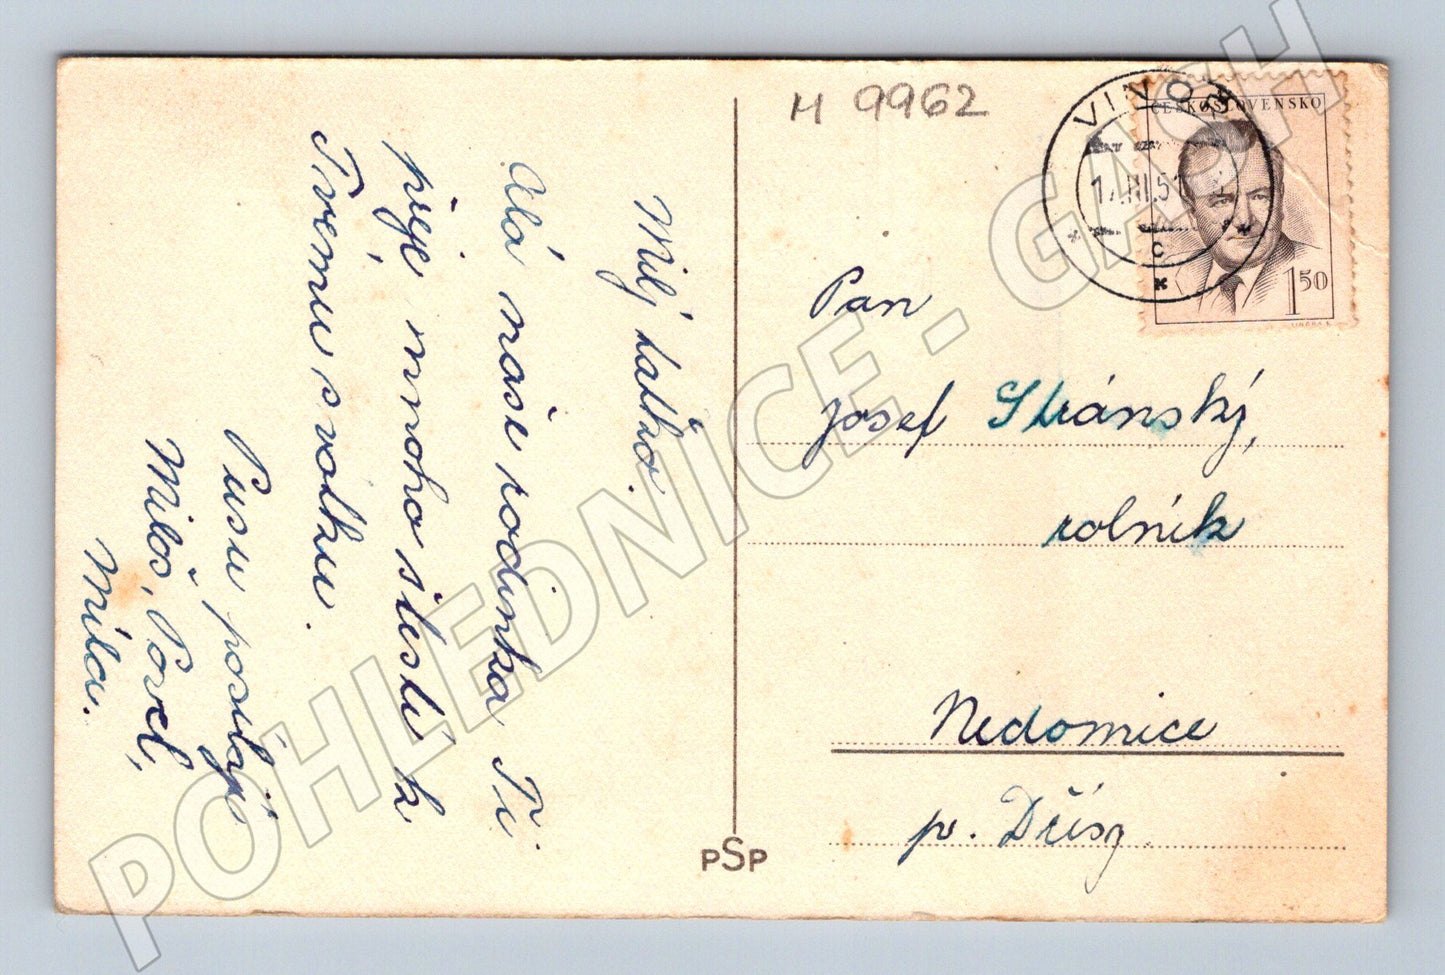 Milý taťko.
Celá naše rodinka Ti
přeje mnoho štěstí k
Tvemu svátku.
Pusu posílají
Miloš, Pavel,
Míla.
M 9962
VINOŘ
17.III.51
C
ČESKOSLOVENSKO
1 50
Pan
Josef Stránský,
rolník
Nedomice
p. Dřísy
PSP
POHLEDNICE - GASH